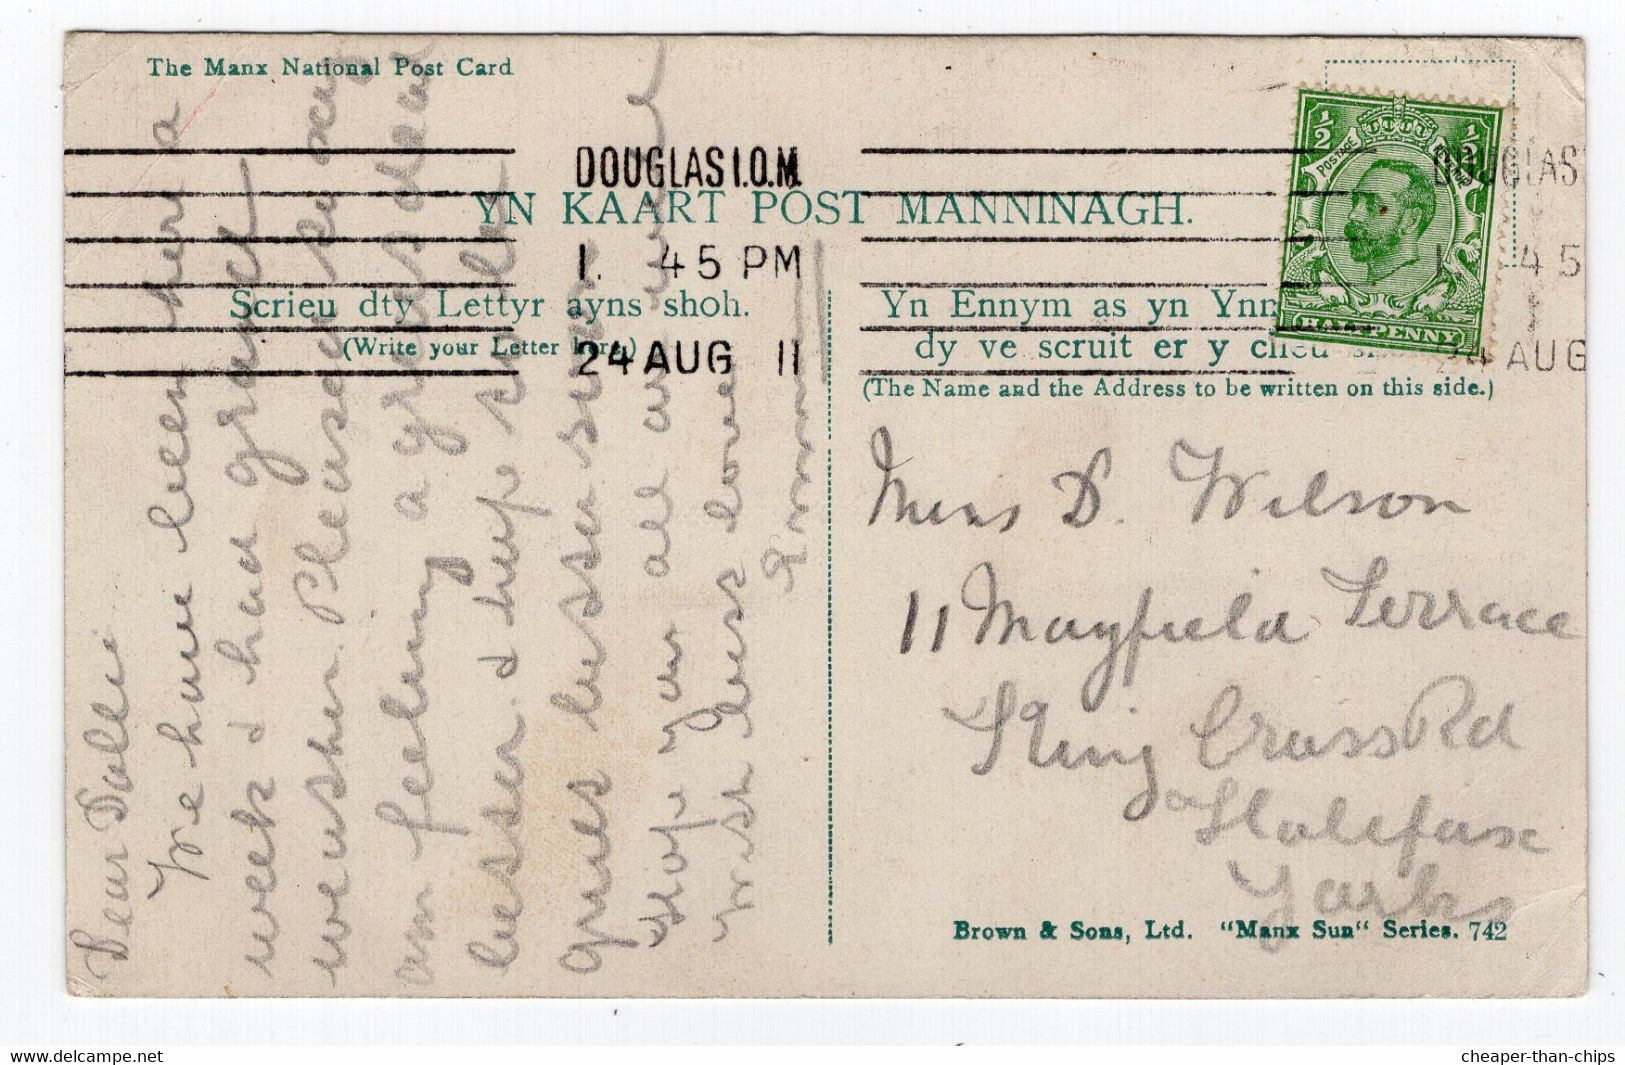 The Manx National Post Card
DOUGLAS I.O.M.
1. 45 PM
24 AUG 11
YN KAART POST MANNINAGH.
Scrieu dty Lettyr ayns shoh.
(Write your Letter here.)
Dear Dollie
We have been here a
week & had grand
weather. Pleased to say
am feeling a great deal
better & hope
better
Hope you are all well
With best love
Yn Ennym as yn
dy ve scruit er y
(The Name and the Address to be written on this side.)
½ ½
POSTAGE REVENUE
HALFPENNY
DOUGLAS
1 45
24 AUG
Miss D. Wilson
11 Mayfield Terrace
King Cross Rd
Halifax
Yorks
Brown & Sons, Ltd. "Manx Sun" Series. 742
www.delcampe.net
cheaper-than-chips